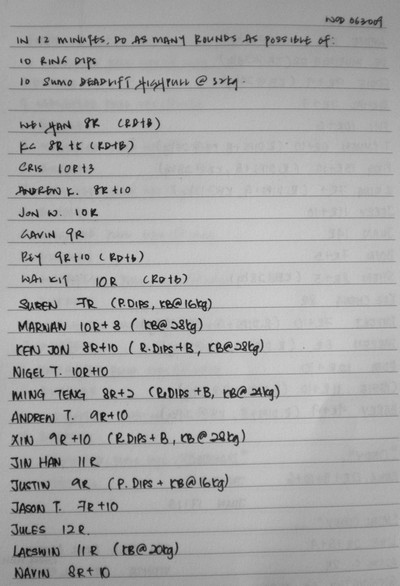 WOD 063009
IN 12 MINUTES, DO AS MANY ROUNDS AS POSSIBLE OF:
10 RING DIPS
10 SUMO DEADLIFT HIGHPULL @ 32kg.
WEI HAN 8R (RD+B)
KC 8R+5 (RD+B)
CRIS 10R+3
ANDREW K. 8R+10
JON W. 10R
GAVIN 9R
REY 9R+10 (RD+B)
WAI KIT 10R (RD+B)
SUREN 7R (P.DIPS, KB@16kg)
MARWAN 10R+8 (KB@28kg)
KEN JON 8R+10 (R.DIPS+B, KB@28kg)
NIGEL T. 10R+10
MING TENG 8R+2 (R.DIPS+B, KB@24kg)
ANDREW T. 9R+10
XIN 9R+10 (R.DIPS+B, KB@28kg)
JIN HAN 11R
JUSTIN 9R (P.DIPS + KB@16kg)
JASON T. 7R+10
JULES 12R.
LAKSWIN 11R (KB@20kg)
NAVIN 8R+10